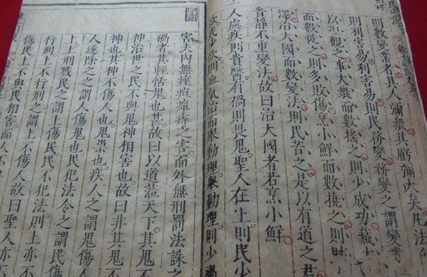 則數變業者其人彌衆其虧彌大矣凡法
則利害易利害易則民務變務變之謂變業
以理觀之事大衆而數搖之則少成功藏大
而數徙之則多敗傷烹小鮮而數撓之則
澤治大國而數變法則民苦之是以有道之君
貴靜不重變法故曰治大國者若烹小鮮
人處疾則貴醫有禍則畏鬼聖人在上則民少
欲民少欲則血氣治而舉動理舉動理則少禍
害夫內無痤疽癉痔之害而外無刑罰法誅之
禍者其輕恬鬼也甚故曰以道蒞天下其鬼不
神治世之民不與鬼神相害也故曰非其鬼不
神也其神不傷人也鬼祟也疾人之謂鬼傷人
人逐除之之謂人傷鬼也民犯法令之謂民傷
上上刑戮民之謂上傷民民不犯法則上亦不
行刑上不行刑之謂上不傷人故曰聖人亦不
傷民上不與民相害而人不